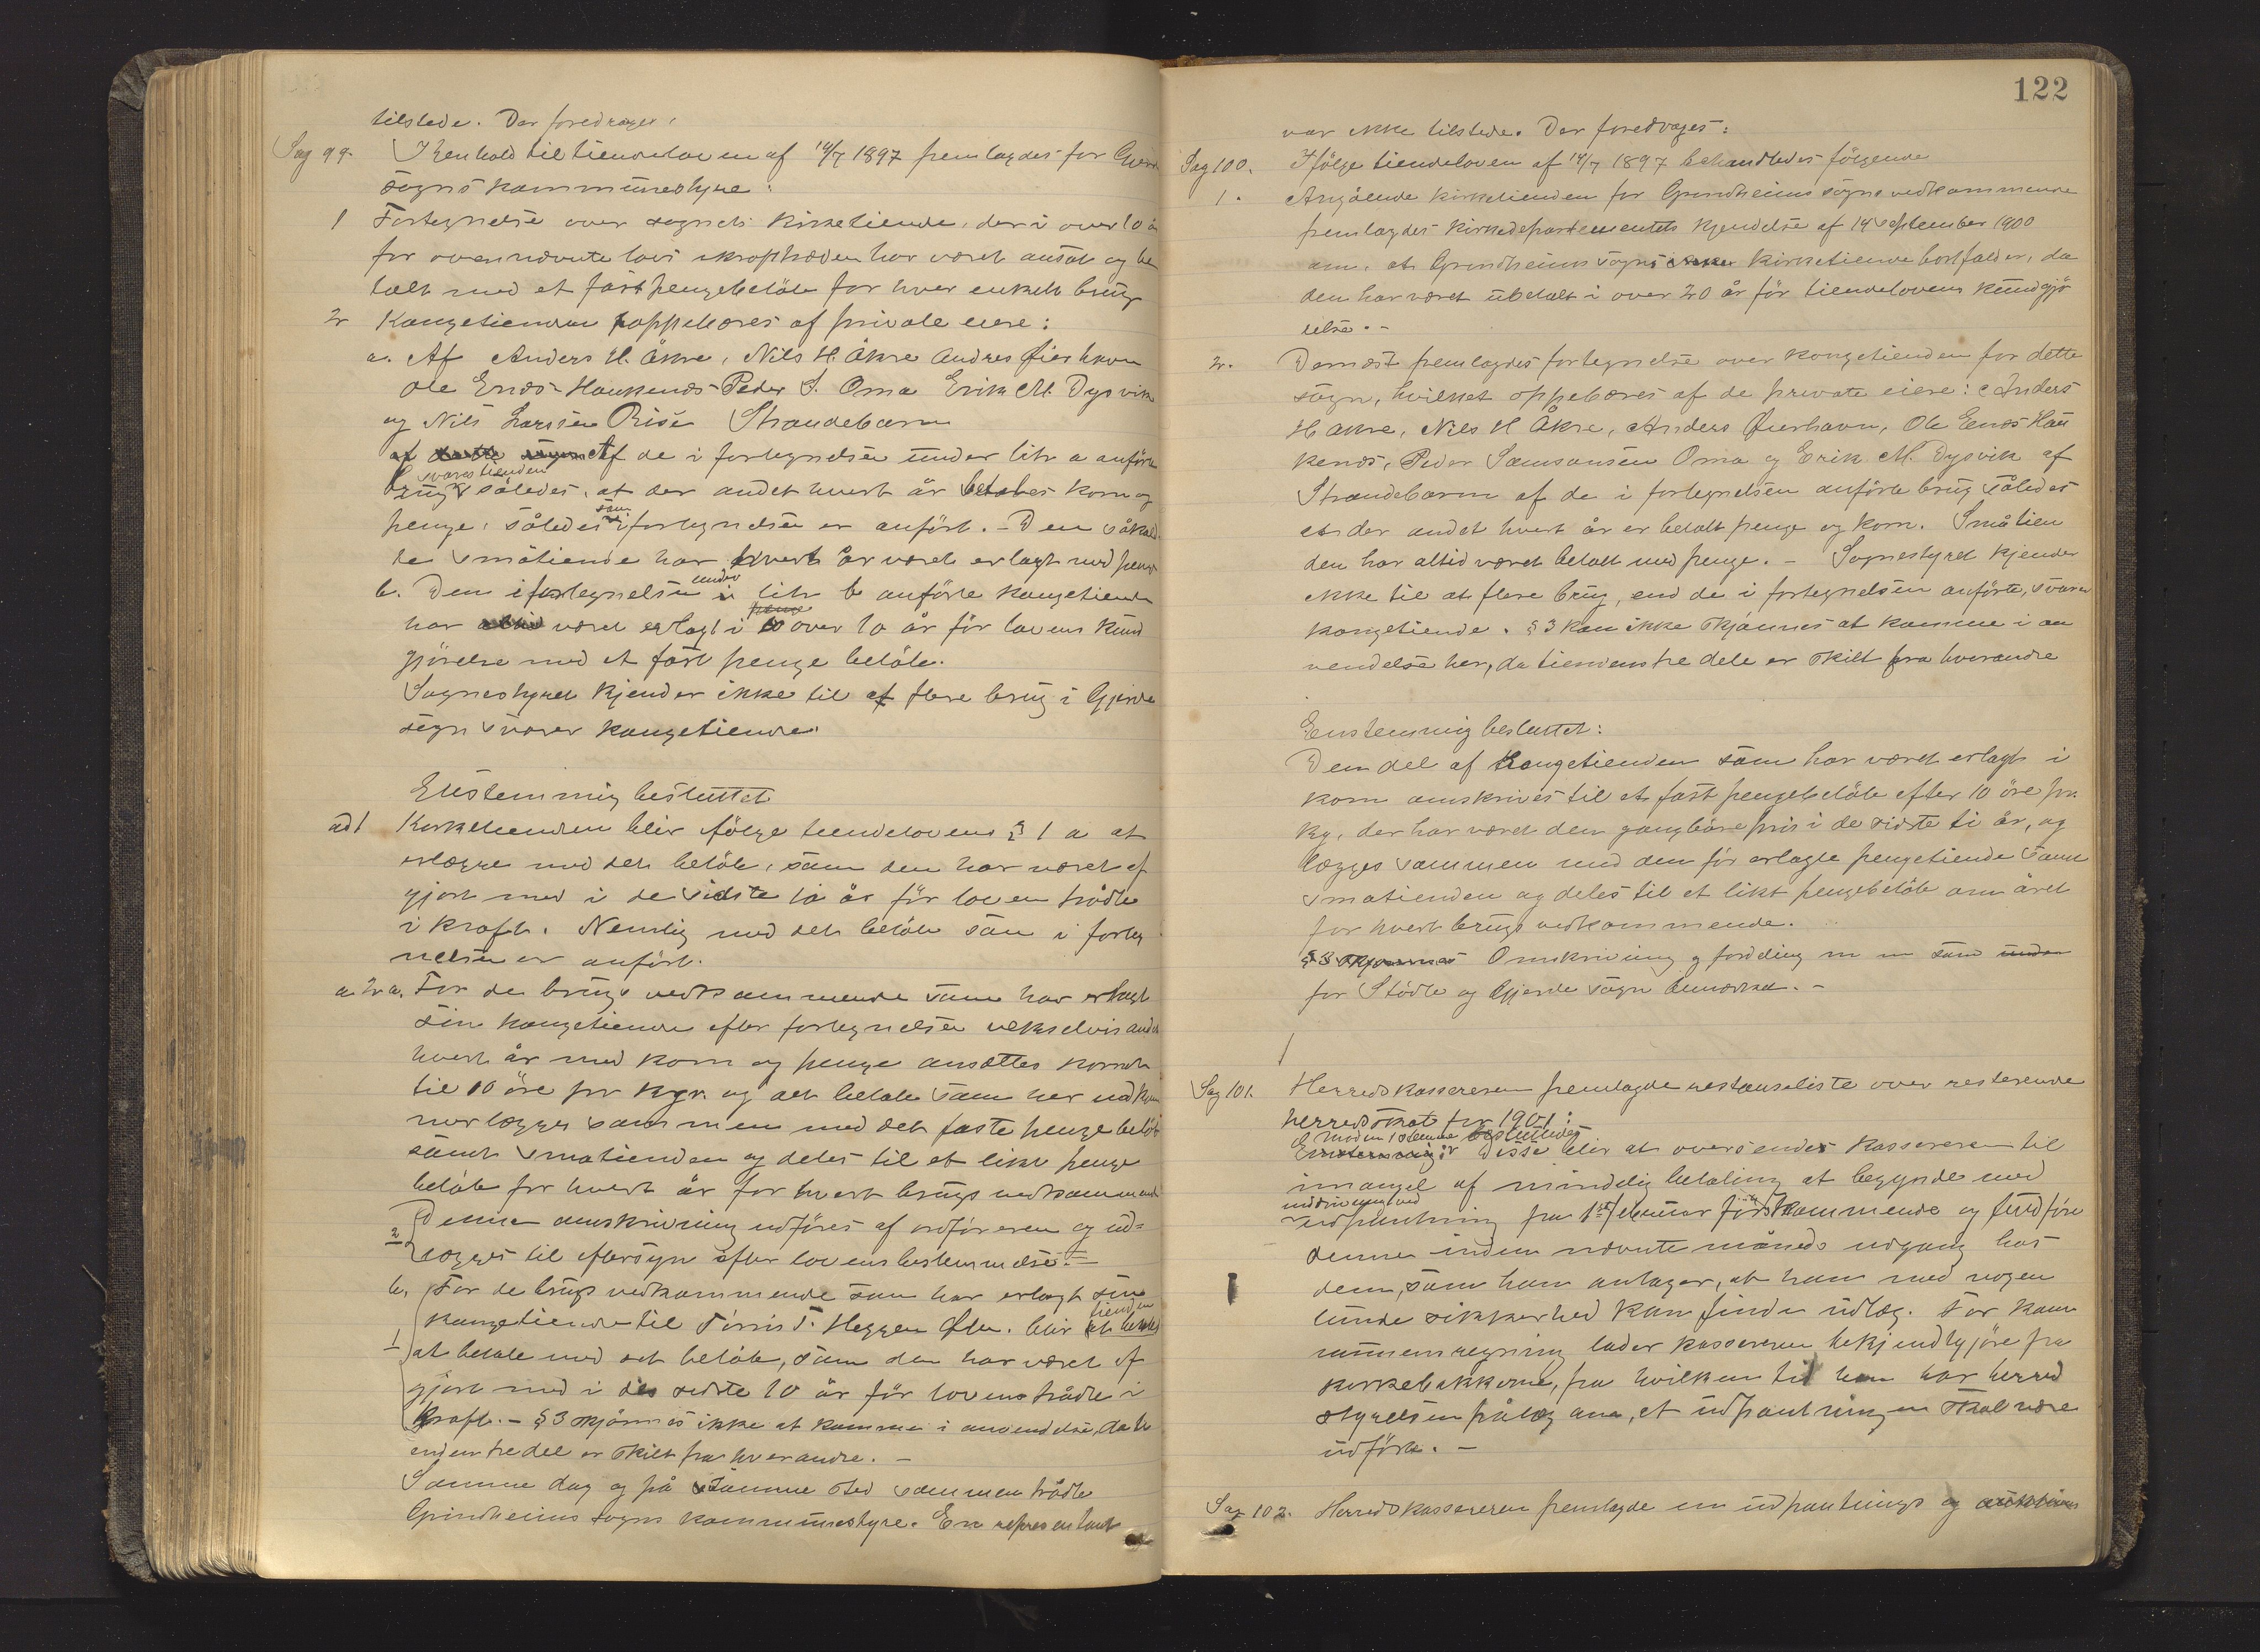 tilstede. Der foredrages:
Sag 99. I Henhold til tiendeloven af 14/7 1897 fremlagdes for Gjerde
sogns kommunestyre:
1 Fortegnelse over sognets kirketiende, der i over 10 år
før ovennævnte lovs ikrafttræden har været ansat og be
talt med et fast pengebeløb for hver enkelt brug
2 Kongetienden oppebæres af private eiere:
a. Af Anders H. Åkre, Nils H. Åkre Andres Øierhavn
Ole Enæs Haukenæs Peder S. Oma Erik M. Dysvik
og Nils Larssen Risé Strandebarm
af Af de i fortegnelsen under litr a anførte
brug svares tienden således, at der andet hvert år betales korn og
penge, således som i fortegnelsen er anført. - Den såkald
te småtiende har hvert år været erlagt med penge
b. Den i fortegnelsen under litr b anførte kongetiende
har været erlagt i over 10 år før lovens kund
gjørelse med et fast penge beløb.
Sognestyret kjender ikke til at flere brug i Gjerde
sogn svarer kongetiende.
Enstemmig besluttet
ad 1 Kirketienden blir ifølge tiendelovens § 1 a at
erlægge med det beløb, som den har været af
gjort med i de sidste 10 år før loven trådte
i kraft. Nemlig med det beløb som i forteg
nelsen er anført.
a. 2 a. For de brugs vedkommende som har erlagt
sin kongetiende efter fortegnelsen vekselvis andet
hvert år med korn og penge ansættes kornet
til 10 öre pr kgr. og det beløb som her udkom
mer lægges sammen med det faste penge beløb
samt småtienden og deles til et likt penge
beløb for hvert år for hvert brugs vedkommende
2 Denne omskrivning udføres af ordføreren og ud=
lægges til eftersyn efter lovens bestemmelse. -
b, For de brugs vedkommende som har erlagt sin
kongetiende til Tørris T. Heggen Ølen. blir tienden
1 at betale med det beløb, som den har været af
gjort med i de sidste 10 år før lovens trådte i
kraft. - § 3 skjönnes ikke at komme i anvendelse, da ti
endens tre del er skilt fra hverandre. -
Samme dag og på samme sted sammen trådte
Grindheims sogns kommunestyre. En representant
122
var ikke tilstede. Der foredrages:
Sag 100. Ifølge tiendeloven af 14/7 1897 behandledes følgende
1. Angående kirketienden for Grindheims sogns vedkommende
fremlagdes kirkedepartementets kjendelse af 14 september 1900
om, at Grindheims sogns kirketiende bortfalder, da
den har været ubetalt i over 20 år før tiendelovens kundgjø
relse. -
2. Dernæst fremlagdes fortegnelse over kongetienden for dette
sogn, hvilket oppebæres af de private eiere: Anders
H Åkre, Nils H Åkre, Anders Øierhavn, Ole Enæs Hau
kenæs, Peder Samsonsen Oma og Erik M. Dysvik af
Strandebarm af de i fortegnelsen anførte brug således
at der andet hvert år er betalt penge og korn. Småtien
den har altid været betalt med penge. - Sognestyret kjender
ikke til at flere brug, end de i fortegnelsen anførte, svarer
kongetiende. § 3 kan ikke skjønnes at komme i an
vendelse her, da tiendens tre dele er skilt fra hverandre
Enstemmig besluttet:
Den del af kongetienden som har været erlagt i
korn omskrives til et fast pengebeløb efter 10 øre pr.
kg, der har været den gangbare pris i de sidste ti år, og
lægges sammen med den før erlagte pengetiende samt
småtienden og deles til et likt pengebeløb om året
for hvert brugs vedkommende.
§ 3 skjønnes Omskrivning og fordeling m m som under
for Stödle og Gjerde sogn bemærket. -
Sag 101. Herredskassereren fremlagde restanseliste over resterende
herredsskat for 1901:
Enstemmig: mod en stemme besluttedes Disse blir at oversende kassereren til
inddrivning ved
imangel af mindelig betaling at begynde med
udpantning fra 1ste februar førstkommende og fuldføre
denne inden nævnte måneds udgang hos
dem, som han antager, at han med nogen
lunde sikkerhed kan finde udlæg. For kom
munens regning lader kassereren bekjendtgjøre fra
kirkebakkerne, fra hvilken tid han har herred
styrelsens pålæg om, at udpantningen skal være
udført. -
Sag 102. Herredskassereren fremlagde en udpantnings og auktions